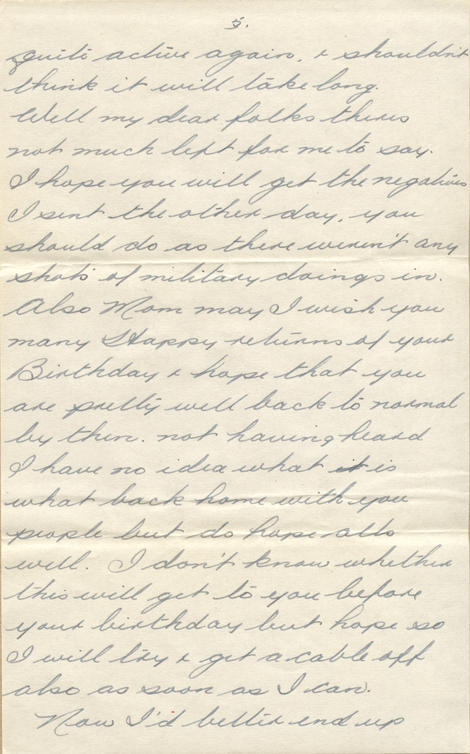 5.
quite active again, & shouldn't
think it will take long.
Well my dear folks theres
not much left for me to say.
I hope you will get the negatives
I sent the other day, you
should do as there weren't any
shots of military doings in.
Also Mom may I wish you
many Happy returns of your
Birthday & hope that you
are pretty well back to normal
by then. not having heard
I have no idea what is
what back home with you
people but do hope alls
well. I don't know whether
this will get to you before
your birthday but hope so
I will try & get a cable off
also as soon as I can.
Now I'd better end up